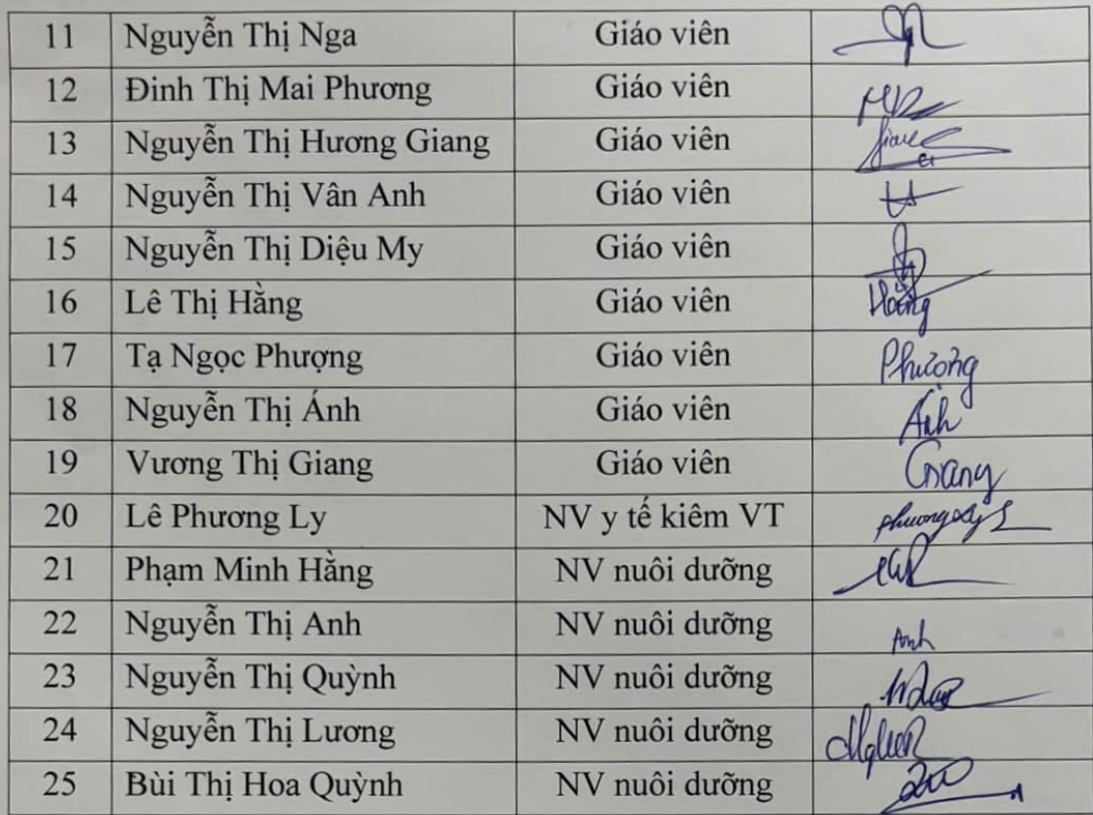 11 Nguyễn Thị Nga Giáo viên
12 Đinh Thị Mai Phương Giáo viên
13 Nguyễn Thị Hương Giang Giáo viên
14 Nguyễn Thị Vân Anh Giáo viên
15 Nguyễn Thị Diệu My Giáo viên
16 Lê Thị Hằng Giáo viên Hằng
17 Tạ Ngọc Phượng Giáo viên Phượng
18 Nguyễn Thị Ánh Giáo viên Ánh
19 Vương Thị Giang Giáo viên Giang
20 Lê Phương Ly NV y tế kiêm VT
21 Phạm Minh Hằng NV nuôi dưỡng
22 Nguyễn Thị Anh NV nuôi dưỡng Anh
23 Nguyễn Thị Quỳnh NV nuôi dưỡng
24 Nguyễn Thị Lương NV nuôi dưỡng
25 Bùi Thị Hoa Quỳnh NV nuôi dưỡng